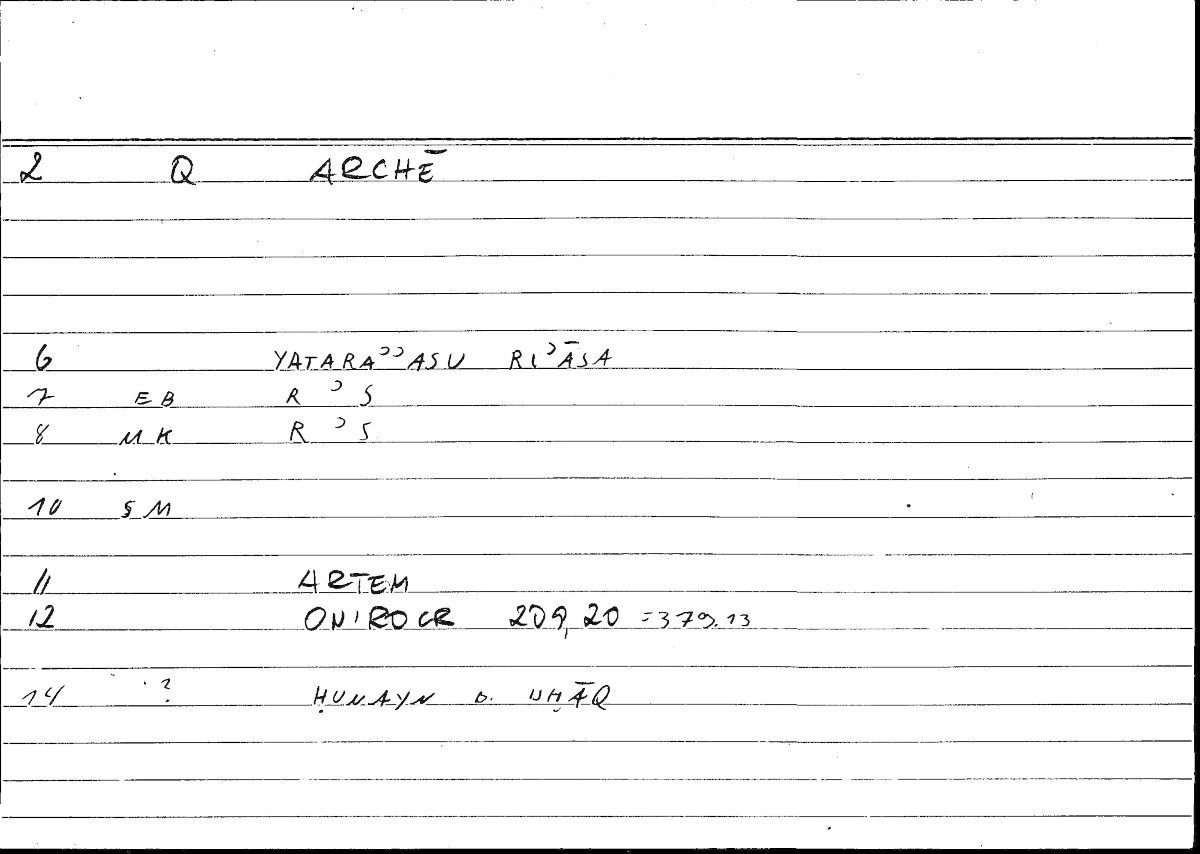 2 Q ARCHĒ
6 YATARAʾʾASU RIʾĀSA
7 EB R ʾ S
8 MK R ʾ S
10 § M
11 ARTEM
12 ONIROCR 209,20 =379.13
14 ? ḤUNAYN B. ISḤĀQ